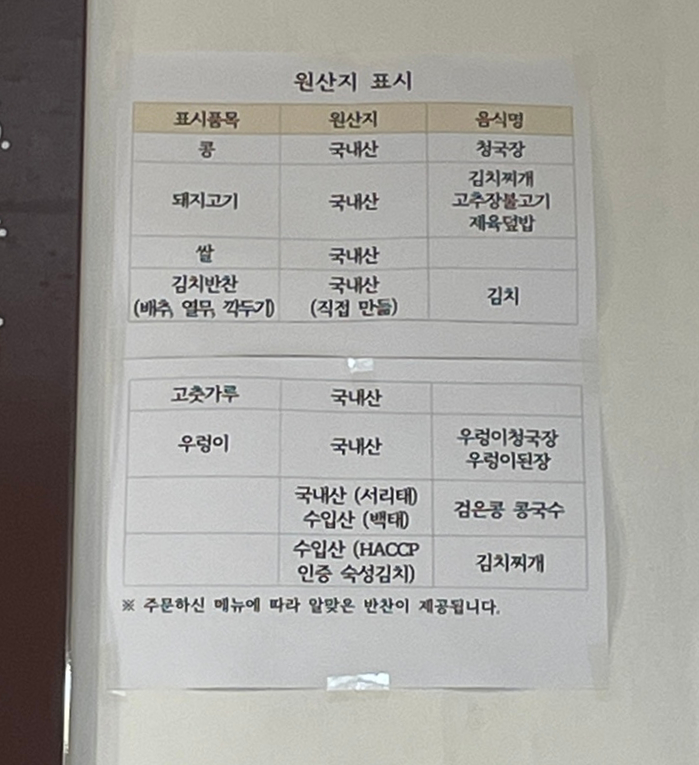 원산지 표시
표시품목 원산지 음식명
콩 국내산 청국장
김치찌개
돼지고기 국내산 고추장불고기
제육덮밥
쌀 국내산
김치반찬 국내산
김치
(배추, 열무, 깍두기) (직접 만듦)
고춧가루 국내산
우렁이 국내산 우렁이청국장
우렁이된장
국내산 (서리태)
수입산 (백태) 검은콩 콩국수
수입산 (HACCP
인증 숙성김치) 김치찌개
※ 주문하신 메뉴에 따라 알맞은 반찬이 제공됩니다.